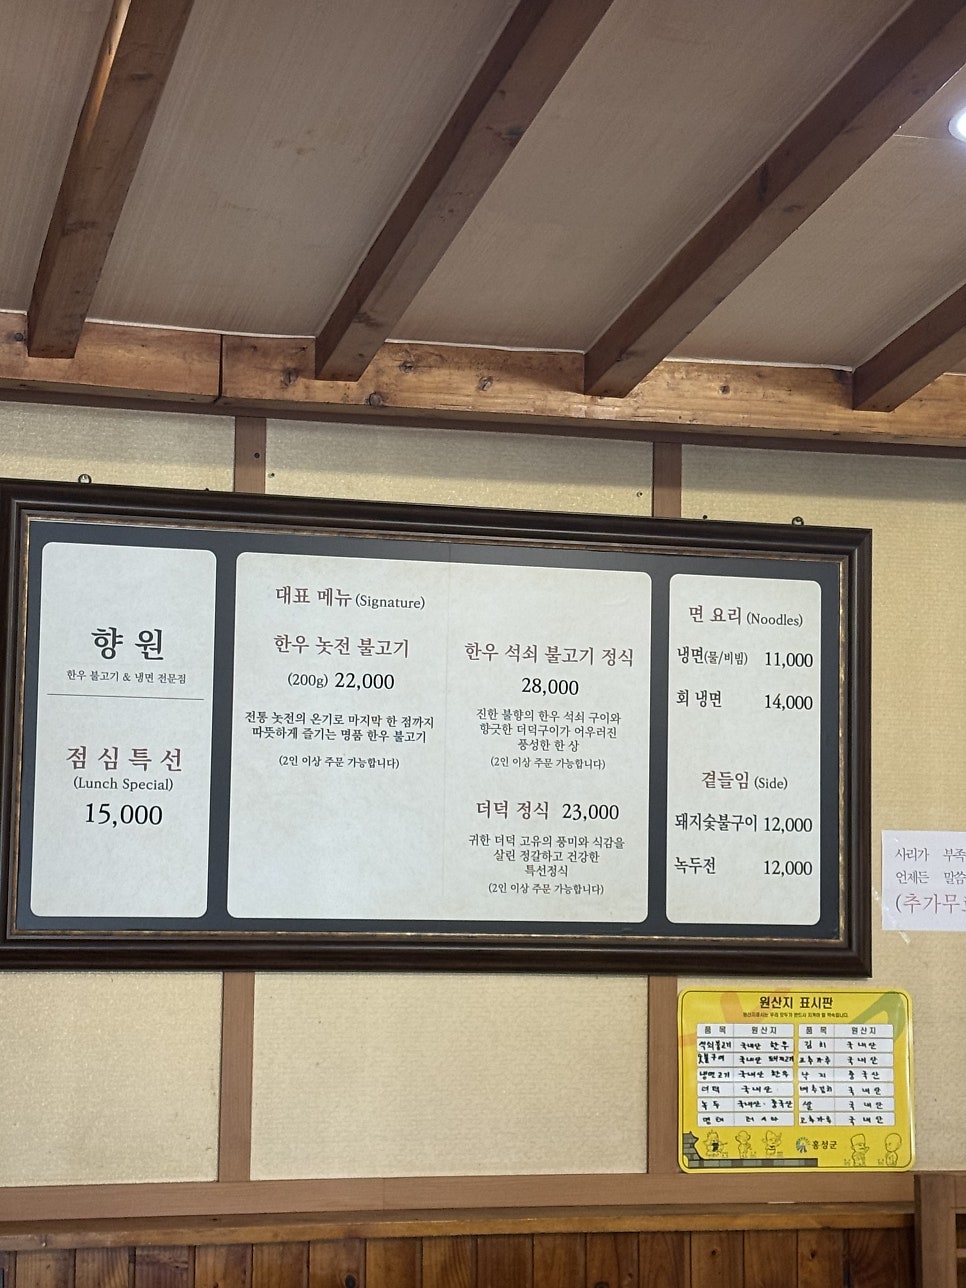 향 원
한우 불고기 & 냉면 전문점
점 심 특 선
(Lunch Special)
15,000
대표 메뉴 (Signature)
한우 놋전 불고기
(200g) 22,000
전통 놋전의 온기로 마지막 한 점까지
따뜻하게 즐기는 명품 한우 불고기
(2인 이상 주문 가능합니다)
한우 석쇠 불고기 정식
28,000
진한 불향의 한우 석쇠 구이와
향긋한 더덕구이가 어우러진
풍성한 한 상
(2인 이상 주문 가능합니다)
더덕 정식 23,000
귀한 더덕 고유의 풍미와 식감을
살린 정갈하고 건강한
특선정식
(2인 이상 주문 가능합니다)
면 요리 (Noodles)
냉면(물/비빔) 11,000
회 냉면 14,000
곁들임 (Side)
돼지숯불구이 12,000
녹두전 12,000
사리가 부족
언제든 말씀
(추가무료
원산지 표시판
품 목 원산지 품 목 원산지
석쇠불고기 국내산 한우 김 치 국내산
숯불구이 국내산 돼지고기 고추가루 국내산
냉면고기 국내산 한우 낙 지 중국산
더덕 국내산 배추김치 국내산
녹두 국내산·중국산 쌀 국내산
명태 러시아 고추가루 국내산
홍성군